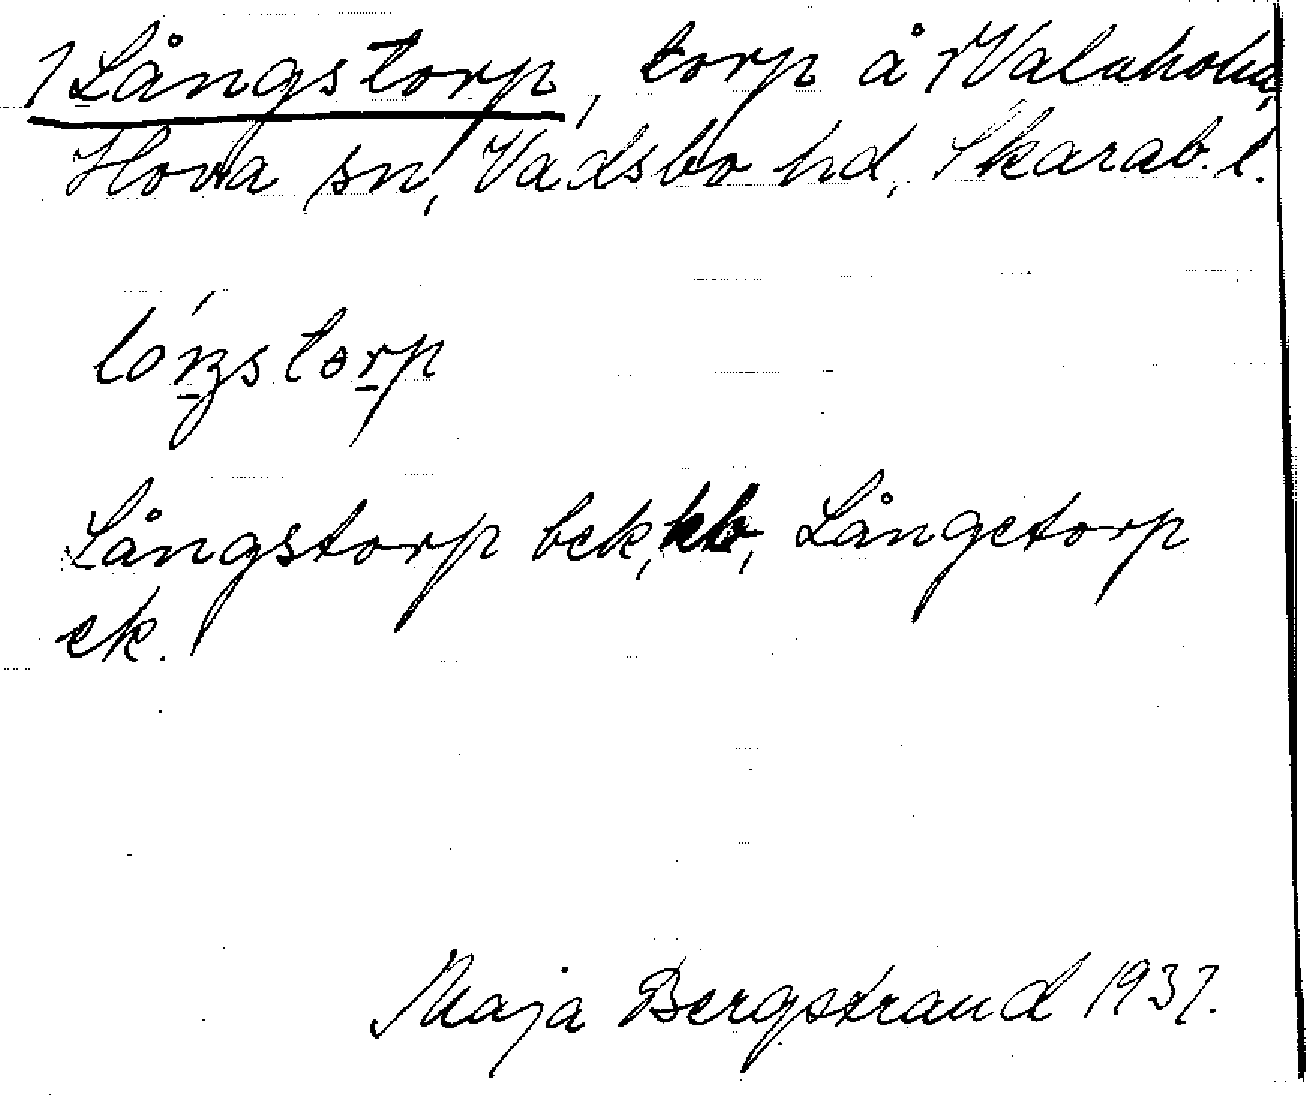 1 Långstorp, torp å Valaholm,
Hova sn, Vadsbo hd, Skarab. l.
lóŋstorp
Långstorp bek, kb, Långetorp
ek.
Maja Bergstrand 1937.